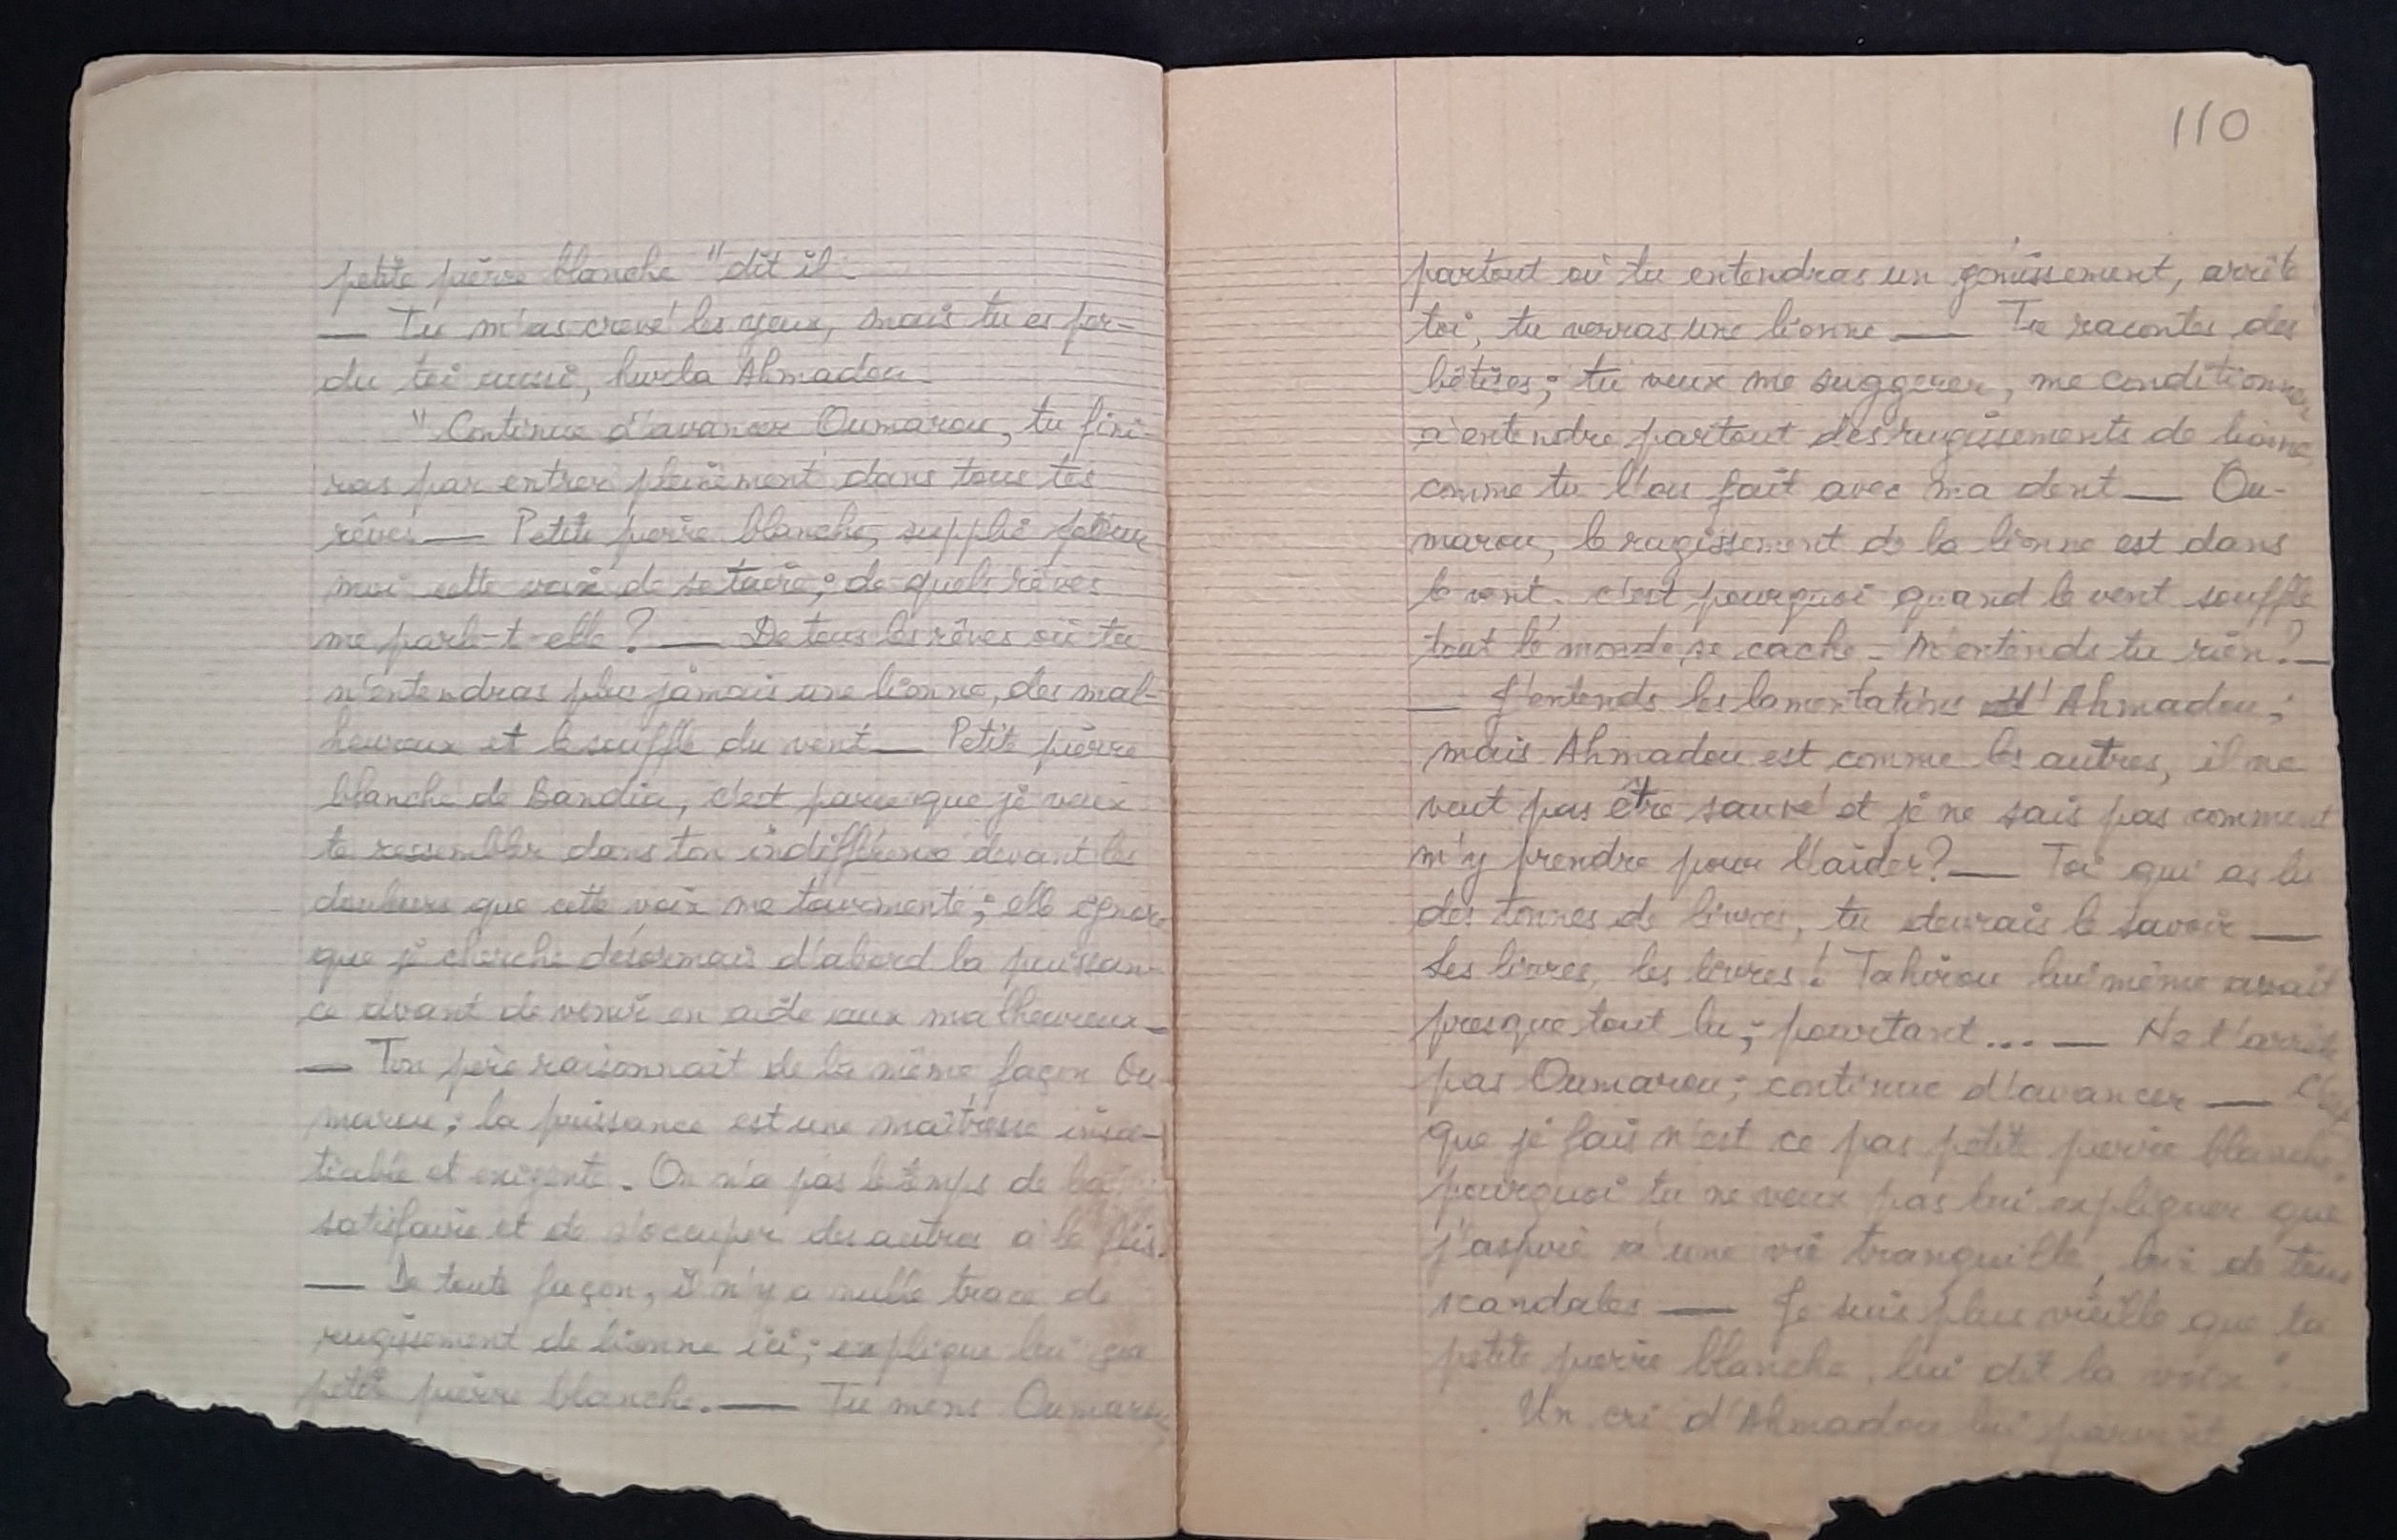 petite pierre blanche" dit il.
— Tu m'as crevé les yeux, mais tu es per-
du toi aussi, hurla Ahmadou.
"Continue d'avancer Oumarou, tu fini-
ras par entrer pleinement dans tous tes
rêves — Petite pierre blanche, supplie pour
moi cette voix de se taire; de quels rêves
me parle-t-elle? — De tous les rêves où tu
n'entendras plus jamais une lionne, des mal-
heureux et le souffle du vent — Petite pierre
blanche de Bandia, c'est parce que je veux
te ressembler dans ton indifférence devant les
douleurs que cette voix me tourmente; elle ignore
que je cherche désormais d'abord la puissan-
ce avant de venir en aide aux malheureux —
— Ton père raisonnait de la même façon Ou-
marou; la puissance est une maîtresse insa-
tiable et exigente. On n'a pas le temps de la
satisfaire et de s'occuper des autres à la fois.
— De toute façon, il n'y a nulle trace de
rugissement de lionne ici; explique lui ça
petite pierre blanche. — Tu mens Oumarou,
110
partout où tu entendras un gémissement, arrête
toi, tu verras une lionne — Tu racontes des
bêtises; tu veux me suggerer, me conditionner
à entendre partout des rugissements de lionne
comme tu l'as fait avec ma dent — Ou-
marou, le rugissement de la lionne est dans
le vent, c'est pourquoi quand le vent souffle
tout le monde se cache. N'entends tu rien? —
— J'entends les lamentations d'Ahmadou;
mais Ahmadou est comme les autres, il ne
veut pas être sauvé et je ne sais pas comment
m'y prendre pour l'aider? — Toi qui as lu
des tonnes de livres, tu devrais le savoir —
Les livres, les livres! Tahirou lui même avait
presque tout lu; pourtant... — Ne t'arrête
pas Oumarou; continue d'avancer — C'est
que je fais n'est ce pas petite pierre blanche,
pourquoi tu ne veux pas lui expliquer que
j'aspire à une vie tranquille, loin de tous
scandales — Je suis plus vieille que ta
petite pierre blanche, lui dit la voix".
Un cri d'Ahmadou lui parvint